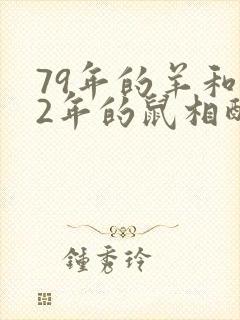 79年的羊和
2年的鼠相
鍾秀玲